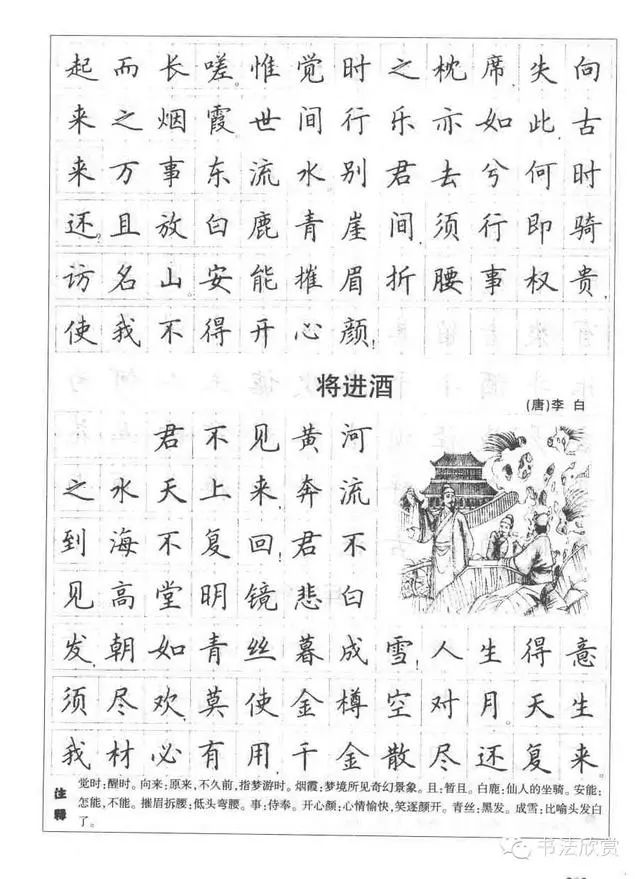 起而长嗟惟觉时之枕席失向
来之烟霞世间行乐亦如此古
来万事东流水别君去兮何时
还且放白鹿青崖间须行即骑
访名山安能摧眉折腰事权贵
使我不得开心颜
将进酒
(唐)李 白
君不见黄河
之水天上来奔流
到海不复回君不
见高堂明镜悲白
发朝如青丝暮成雪人生得意
须尽欢莫使金樽空对月天生
我材必有用千金散尽还复来
注释
觉时:醒时。向来:原来,不久前,指梦游时。烟霞:梦境所见奇幻景象。且:暂且。白鹿:仙人的坐骑。安能:
怎能,不能。摧眉拆腰:低头弯腰。事:侍奉。开心颜:心情愉快,笑逐颜开。青丝:黑发。成雪:比喻头发白
了。
书法欣赏